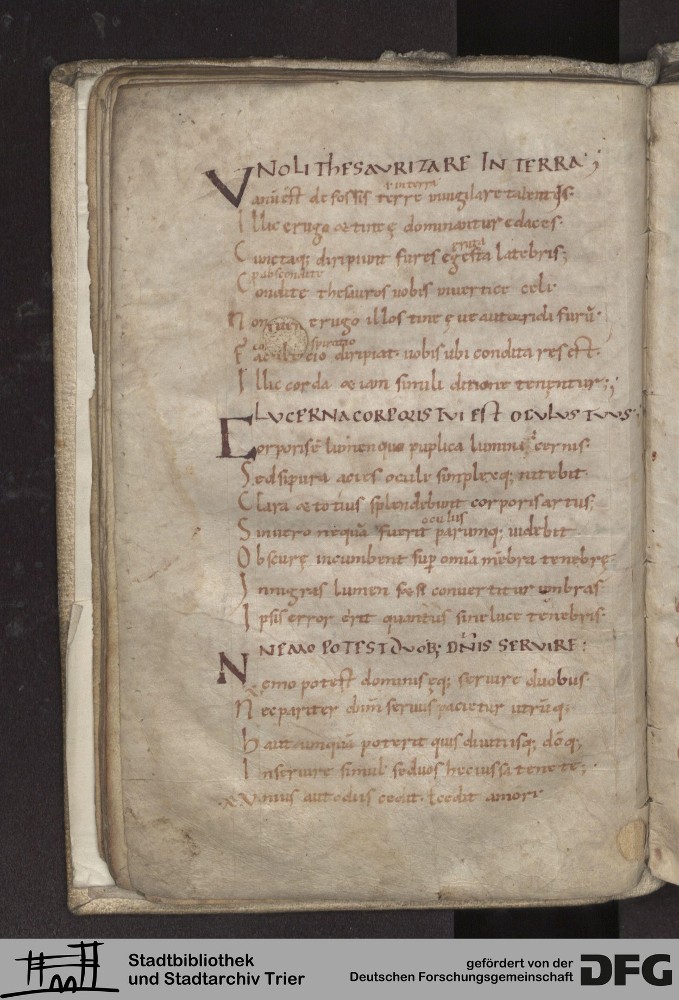 NOLI THESAVRIZARE IN TERRA;
in terra
Vanũ est defossis terre vivigilare talentis.
Illic erugo & tineę dominantur edaces.
Cunctaq; diripiunt fures egesta latebris;
p abscondite
Condite thesauros uobis in uertice celi.
Non erugo illos tineę ue aut &ridi furũ.
spiratio
diripiat. uobis ubi condita res est.
Illic corda &iam simili ditione tenentur;
LVCERNA CORPORIS TVI EST OCVLVS TVVS;
Corporis ẽ lumen quo puplica lumina cernis.
Sed si pura acies oculi simplexq; nitebit
Clara & totius splendebunt corporis artus;
oculus
Sin uero nequã fuerit parumq; uidebit
Obscurę incumbent sup omia mẽbra tenebrę.
In nigras lumen si est conuertitur umbras.
Ipsis error erit quantus sine luce tenebris.
NEMO POTEST DVOB; DÑIS SERVIRE:
Nemo potest dominis ęq; seruire duobus.
Nec pariter dum seruus pacietur utrũq;
haut umquã poterit quis diuitiisq; dõq;
Inseruire simul.
Vnius aut odiis cedit. cedit amori
Stadtbibliothek
und Stadtarchiv Trier
gefördert von der
Deutschen Forschungsgemeinschaft
DFG